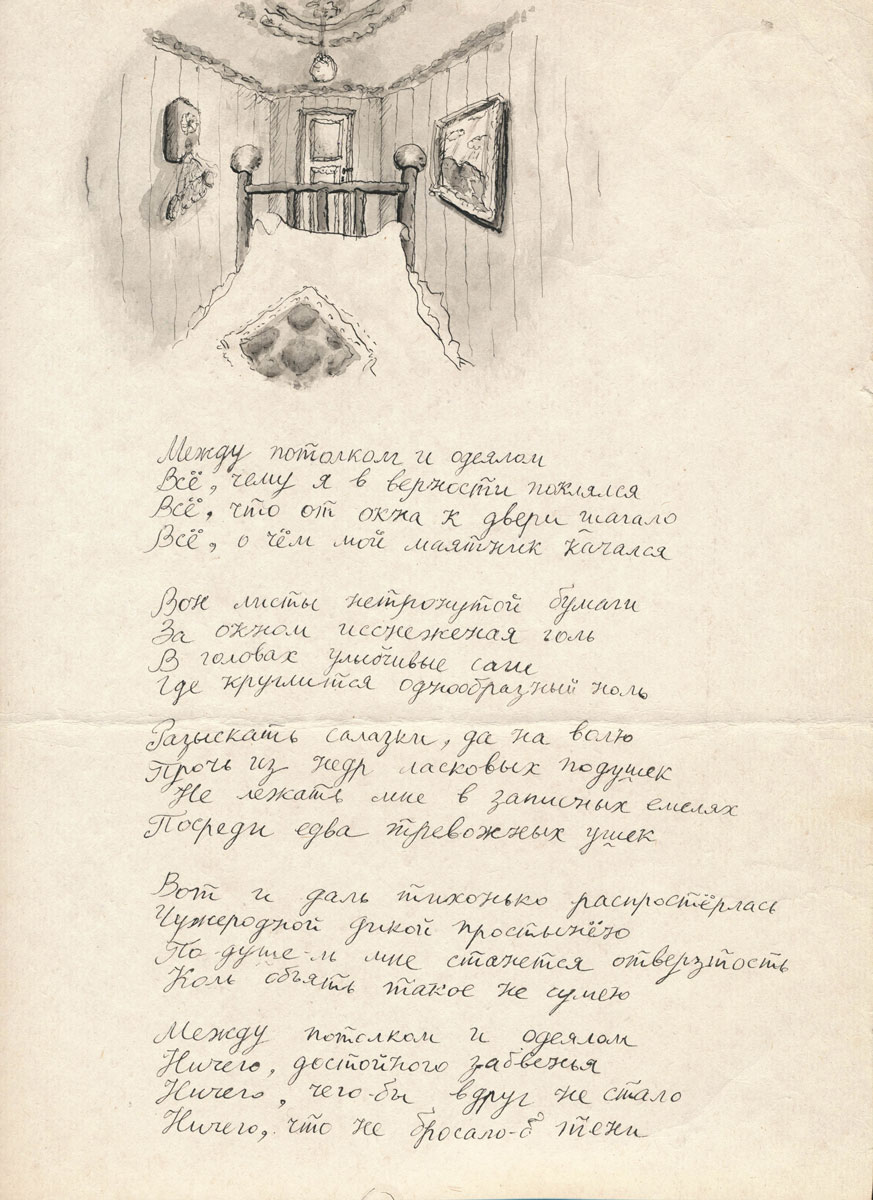 Между потолком и одеялом
Всё, чему я в верности поклялся
Всё, что от окна к двери шагало
Всё, о чём мой маятник качался
Вон листы нетронутой бумаги
За окном исснеженая голь
В головах улыбчивые саги
Где круглится однообразный ноль
Разыскать салазки, да на волю
Прочь из недр ласковых подушек
Не лежать мне в записных емелях
Посреди едва тревожных ушек
Вот и даль тихонько распростёрлась
Чужеродной дикой простынёю
По душе-ли мне станется отверзтость
Коль объять такое не сумею
Между потолком и одеялом
Ничего, достойного забвенья
Ничего, чего-бы вдруг не стало
Ничего, что не бросало-б тени